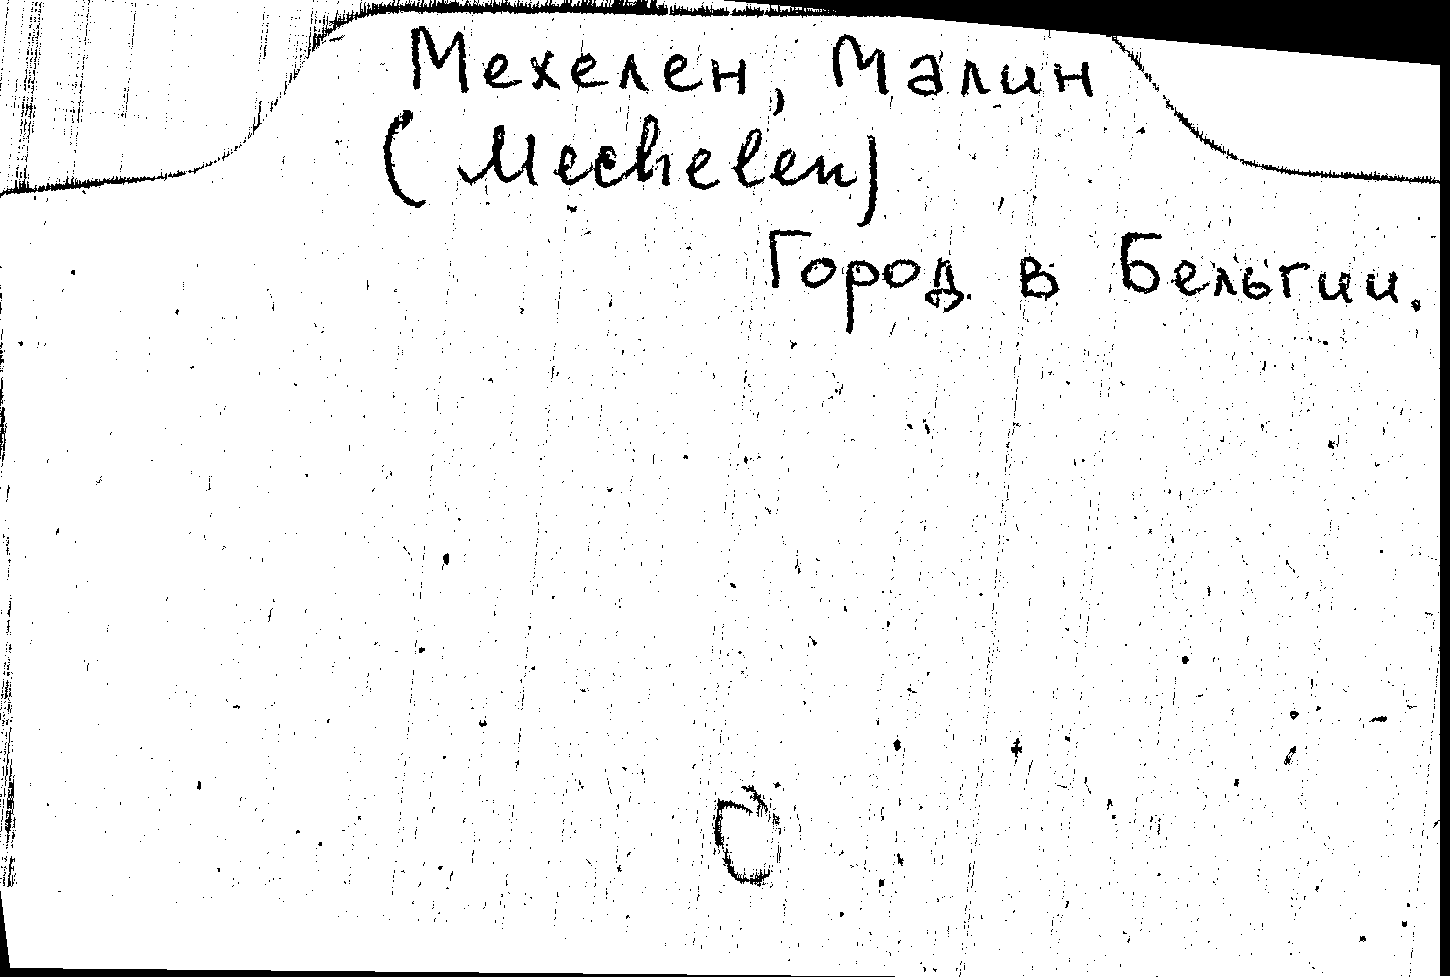 Мехелен, Малин
(Mechelen)
Город в Бельгии.